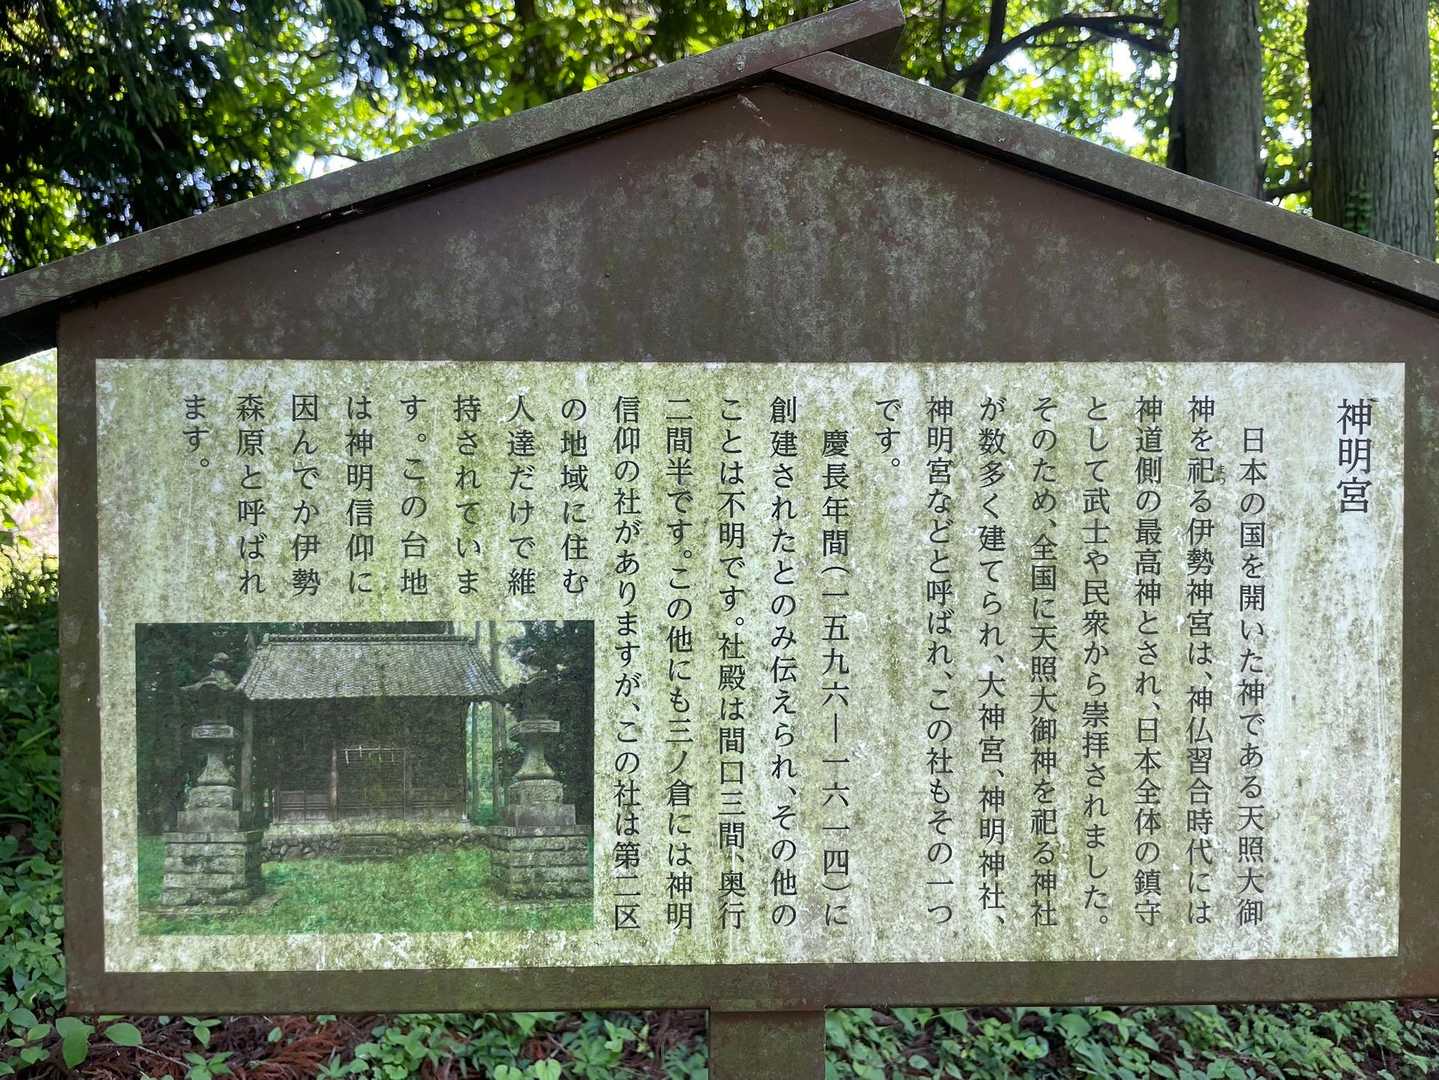 神明宮
日本の国を開いた神である天照大御
神を祀る伊勢神宮は、神仏習合時代には
まつ
神道側の最高神とされ、日本全体の鎮守
として武士や民衆から崇拝されました。
そのため、全国に天照大御神を祀る神社
が数多く建てられ、大神宮、神明神社、
神明宮などと呼ばれ、この社もその一つ
です。
慶長年間(一五九六―一六一四)に
創建されたとのみ伝えられ、その他の
ことは不明です。社殿は間口三間、奥行
二間半です。この他にも三ノ倉には神明
信仰の社がありますが、この社は第二区
の地域に住む
人達だけで維
持されていま
す。この台地
は神明信仰に
因んでか伊勢
森原と呼ばれ
ます。